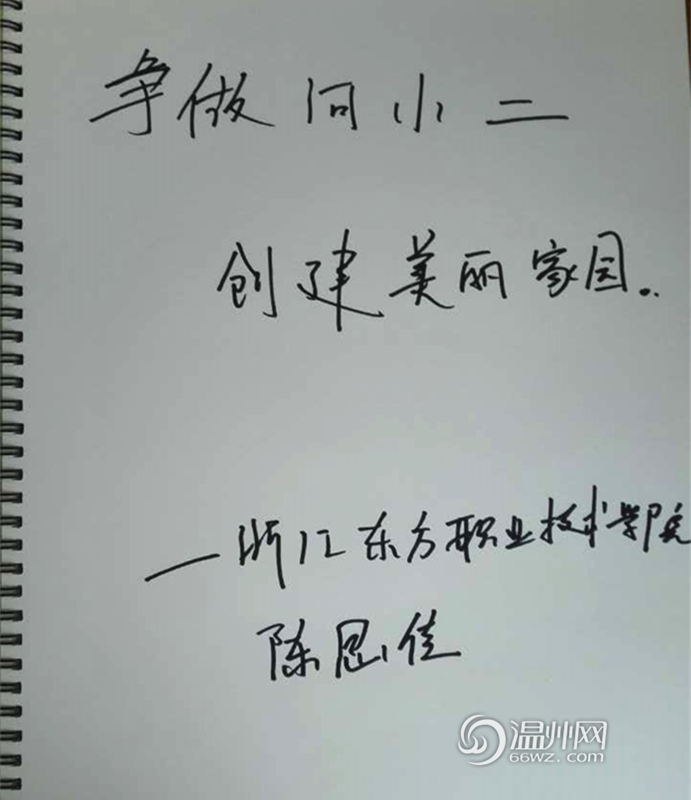 争做问小二
创建美丽家园..
—浙江东方职业技术学院
陈思佳
温州网
66wz.com